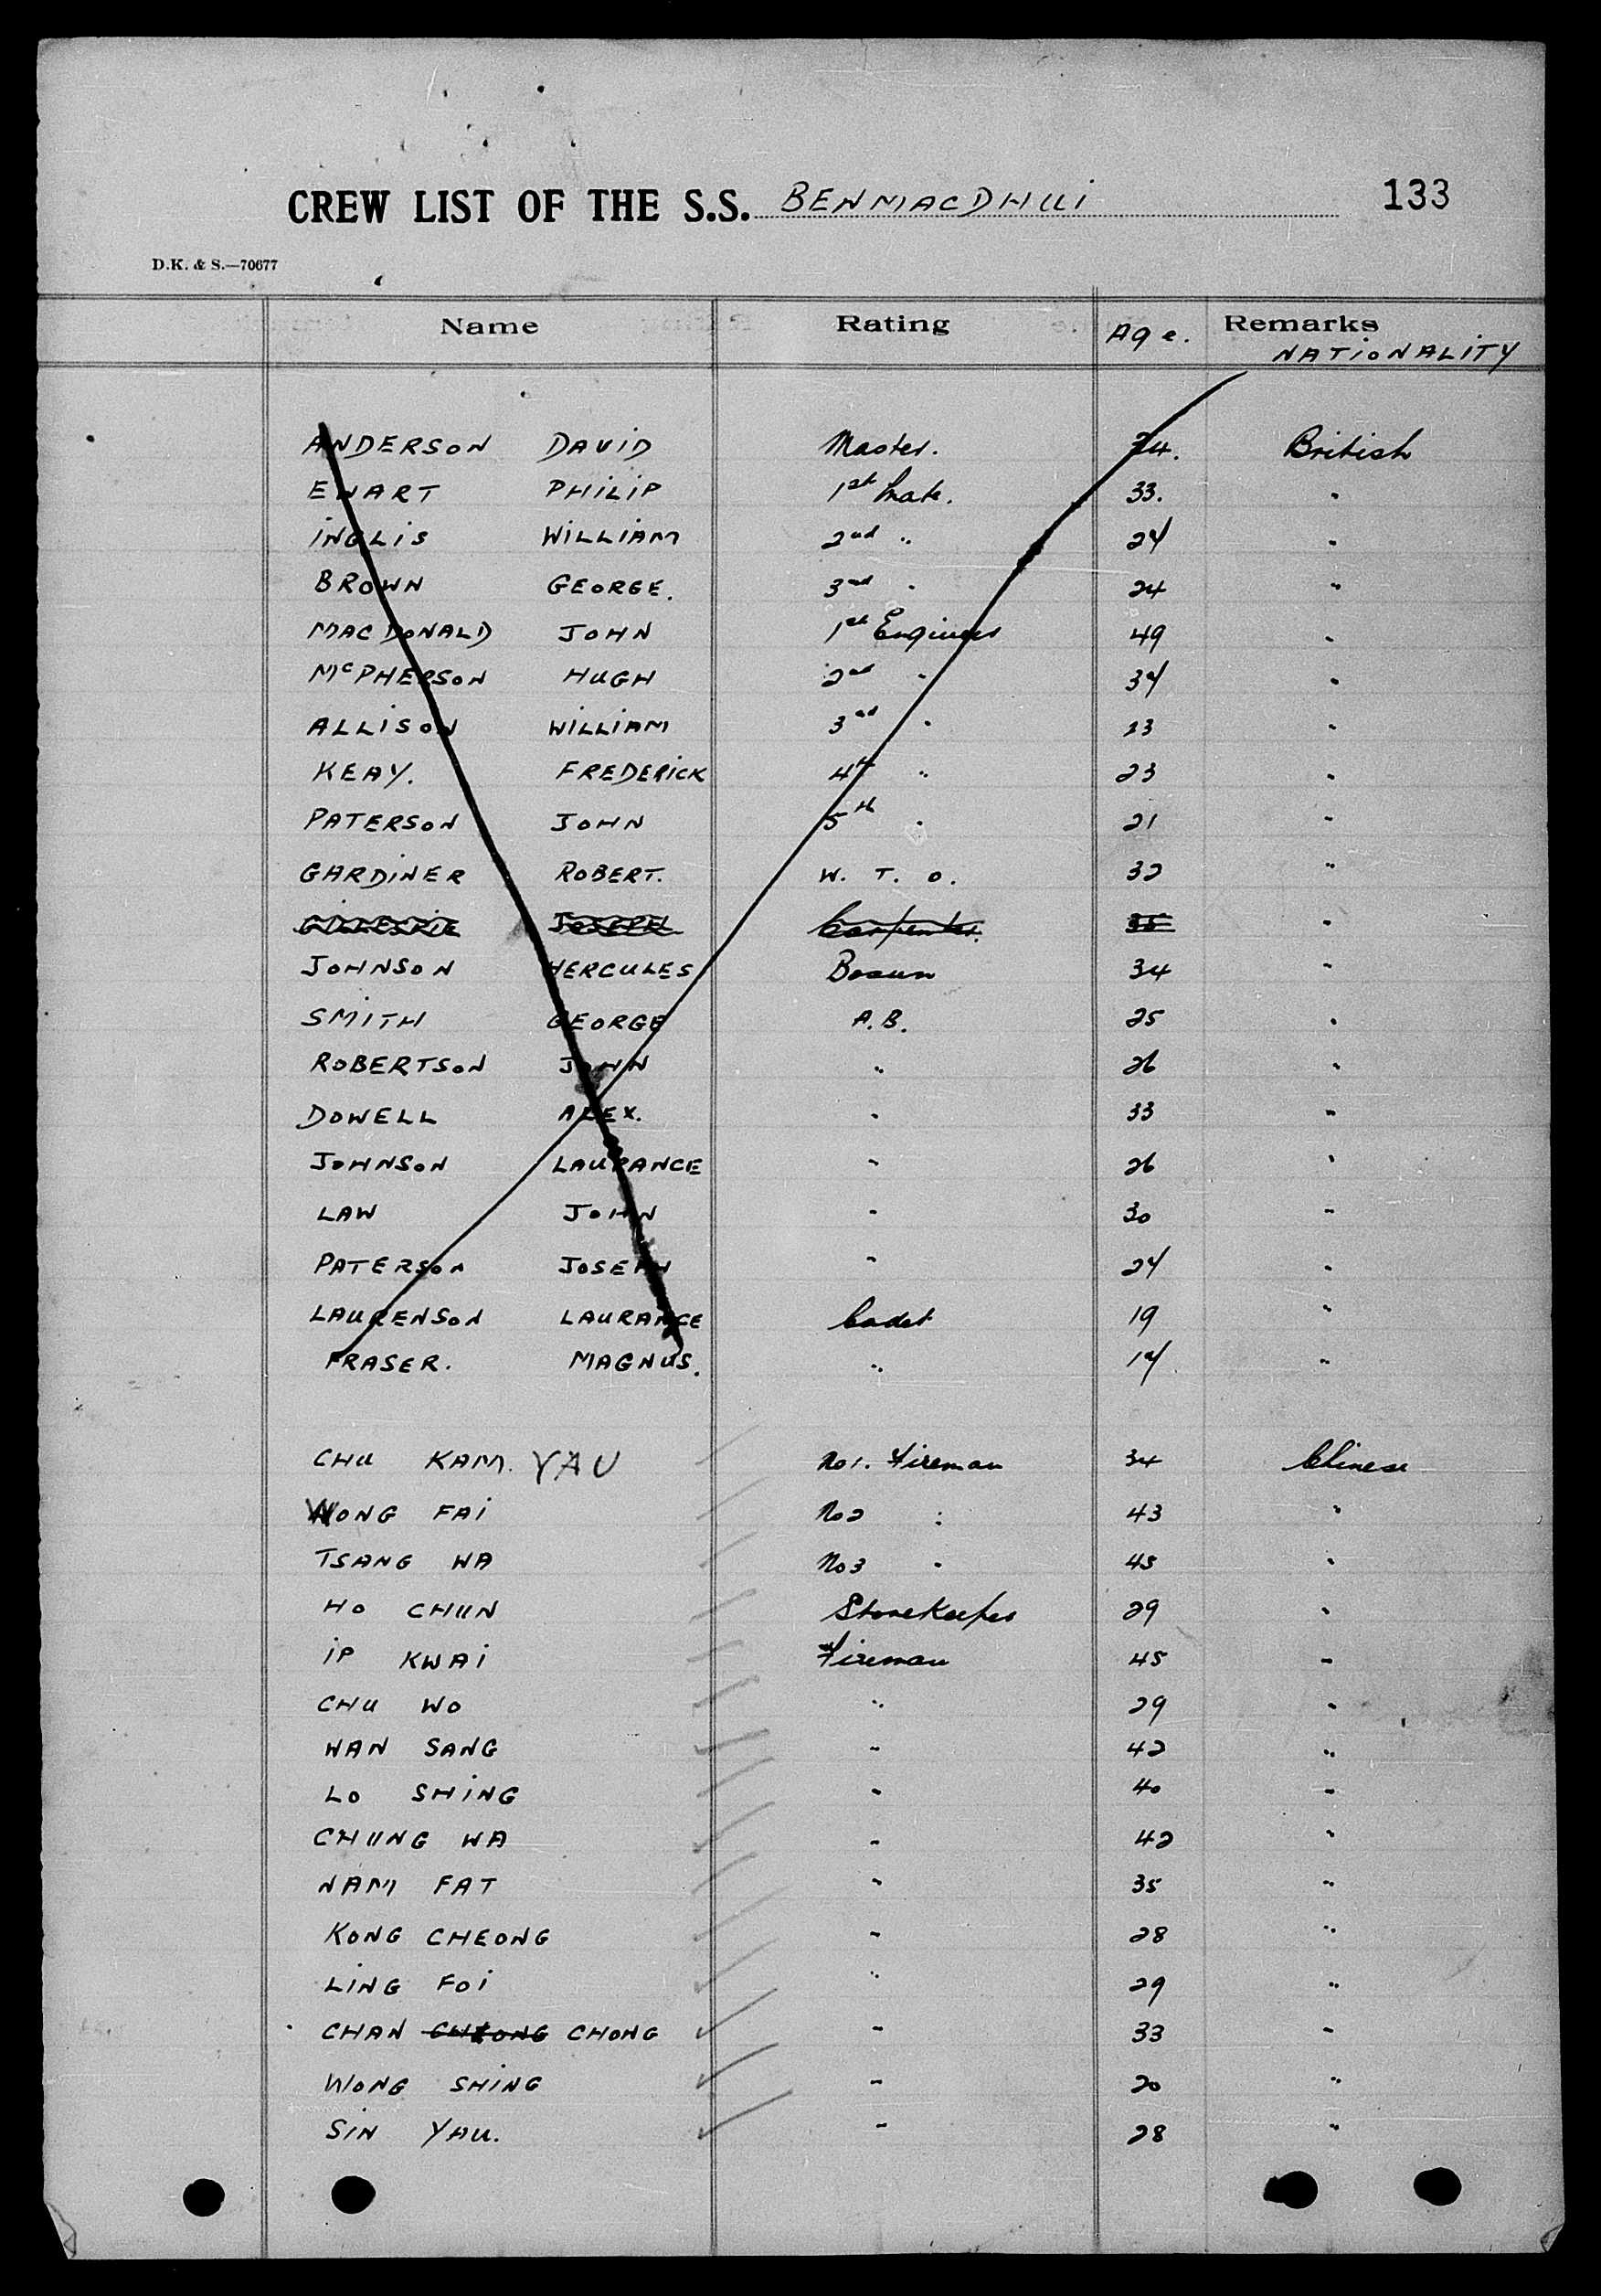 CREW LIST OF THE S.S. BENMACDHUI 133
D.K. & S.—70677
Name Rating Age. Remarks
NATIONALITY
ANDERSON DAVID Master. British
EWART PHILIP 1st Mate. 33. "
INGLIS WILLIAM 2nd " 24 "
BROWN GEORGE. 3rd " 24 "
MACDONALD JOHN 1st Engineer 49 "
McPHERSON HUGH 2nd " 34 "
ALLISON WILLIAM 3rd " 23 "
KEAY. FREDERICK 4th " 23 "
PATERSON JOHN 5th " 21 "
GARDINER ROBERT. W. T. O. 32 "
GILLESPIE JOSEPH Carpenter. "
JOHNSON HERCULES Bosun 34 "
SMITH GEORGE A.B. 25 "
ROBERTSON JOHN " 26 "
DOWELL ALEX. " 33 "
JOHNSON LAURANCE " 26 "
LAW JOHN " 30 "
PATERSON JOSEPH " 24 "
LAURENSON LAURANCE Cadet 19 "
FRASER. MAGNUS. " "
CHU KAM. YAU No1. Fireman 34 Chinese
WONG FAI No2 " 43 "
TSANG WA No3 " 45 "
HO CHUN StoreKeeper 29 "
IP KWAI Fireman 45 "
CHU WO " 29 "
WAN SANG " 42 "
LO SHING " 40 "
CHUNG WA " 42 "
NAM FAT " 35 "
KONG CHEONG " 28 "
LING FOI " 29 "
CHAN CHEONG CHONG " 33 "
WONG SHING " 20 "
SIN YAU. " 28 "